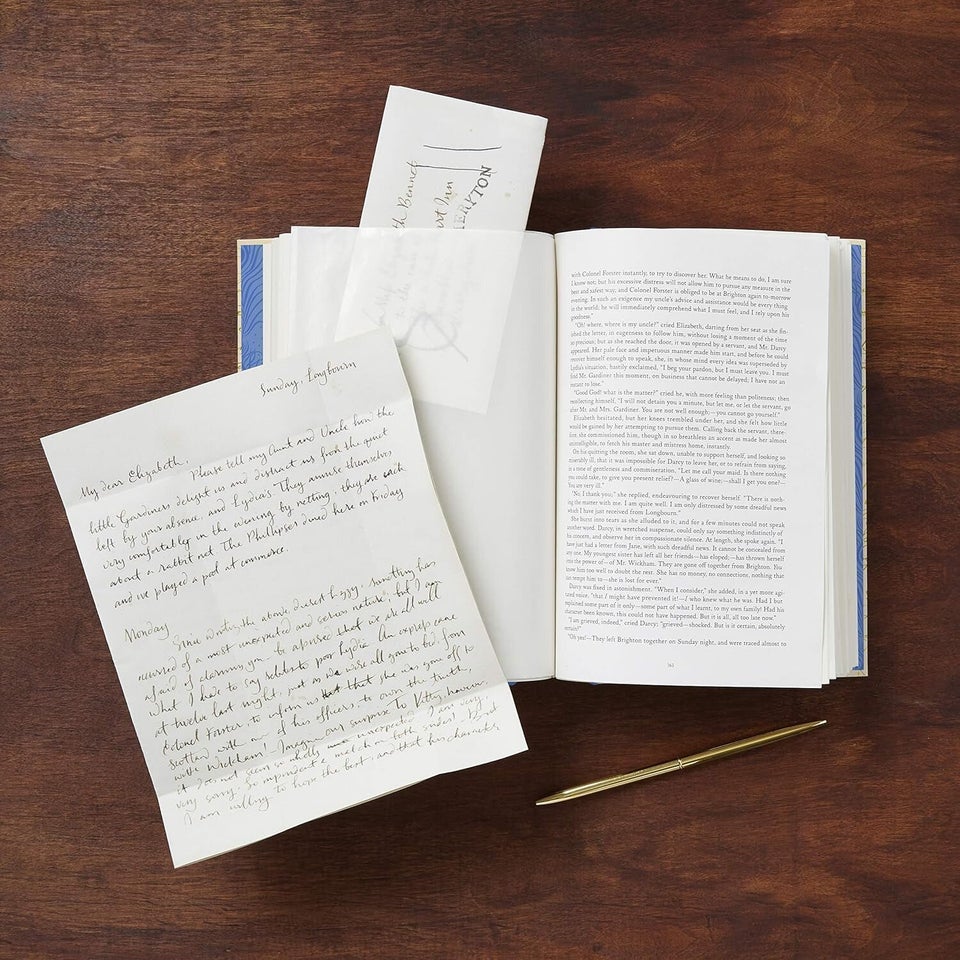 th Bennet
art Inn
MERYTON
Sunday, Longbourn
My dear Elizabeth,
Please tell my Aunt and Uncle how the
little Gardiners delight us and distract us from the quiet
left by your absence, and Lydia's. They amuse themselves
very comfortably in the evening by netting; they are
about a rabbit net. The Phillipses dined here on Friday
and we played a pool at commerce.
Monday
Since writing the above, dearest Lizzy, something has
occurred of a most unexpected and serious nature; but I am
afraid of alarming you - be assured that we are all well.
What I have to say relates to poor Lydia. An express came
at twelve last night, just as we were all gone to bed, from
Colonel Forster, to inform us that she was gone off to
Scotland with one of his officers; to own the truth,
with Wickham! Imagine our surprise. To Kitty, however,
it does not seem so wholly unexpected. I am very,
very sorry. So imprudent a match on both sides! But
I am willing to hope the best, and that his character
with Colonel Forster instantly, to try to discover her. What he means to do, I am sure
I know not; but his excessive distress will not allow him to pursue any measure in the
best and safest way, and Colonel Forster is obliged to be at Brighton again to-morrow
evening. In such an exigence my uncle's advice and assistance would be every thing
in the world; he will immediately comprehend what I must feel, and I rely upon his
goodness."
"Oh! where, where is my uncle?" cried Elizabeth, darting from her seat as she fin-
ished the letter, in eagerness to follow him, without losing a moment of the time
so precious; but as she reached the door, it was opened by a servant, and Mr. Darcy
appeared. Her pale face and impetuous manner made him start, and before he could
recover himself enough to speak, she, in whose mind every idea was superseded by
Lydia's situation, hastily exclaimed, "I beg your pardon, but I must leave you. I must
find Mr. Gardiner this moment, on business that cannot be delayed; I have not an
instant to lose."
"Good God! what is the matter?" cried he, with more feeling than politeness; then
recollecting himself, "I will not detain you a minute, but let me, or let the servant, go
after Mr. and Mrs. Gardiner. You are not well enough;—you cannot go yourself."
Elizabeth hesitated, but her knees trembled under her, and she felt how little
would be gained by her attempting to pursue them. Calling back the servant, there-
fore, she commissioned him, though in so breathless an accent as made her almost
unintelligible, to fetch his master and mistress home, instantly.
On his quitting the room, she sat down, unable to support herself, and looking so
miserably ill, that it was impossible for Darcy to leave her, or to refrain from saying,
in a tone of gentleness and commiseration, "Let me call your maid. Is there nothing
you could take, to give you present relief?—A glass of wine;—shall I get you one?—
You are very ill."
"No, I thank you;" she replied, endeavouring to recover herself. "There is noth-
ing the matter with me. I am quite well. I am only distressed by some dreadful news
which I have just received from Longbourn."
She burst into tears as she alluded to it, and for a few minutes could not speak
another word. Darcy, in wretched suspense, could only say something indistinctly of
his concern, and observe her in compassionate silence. At length, she spoke again. "I
have just had a letter from Jane, with such dreadful news. It cannot be concealed from
any one. My youngest sister has left all her friends—has eloped;—has thrown herself
into the power of—of Mr. Wickham. They are gone off together from Brighton. You
know him too well to doubt the rest. She has no money, no connections, nothing that
can tempt him to—she is lost for ever."
Darcy was fixed in astonishment. "When I consider," she added, in a yet more agi-
tated voice, "that I might have prevented it!—I who knew what he was. Had I but
explained some part of it only—some part of what I learnt, to my own family! Had his
character been known, this could not have happened. But it is all, all too late now."
"I am grieved, indeed," cried Darcy; "grieved—shocked. But is it certain, absolutely
certain?"
"Oh yes!—They left Brighton together on Sunday night, and were traced almost to
161